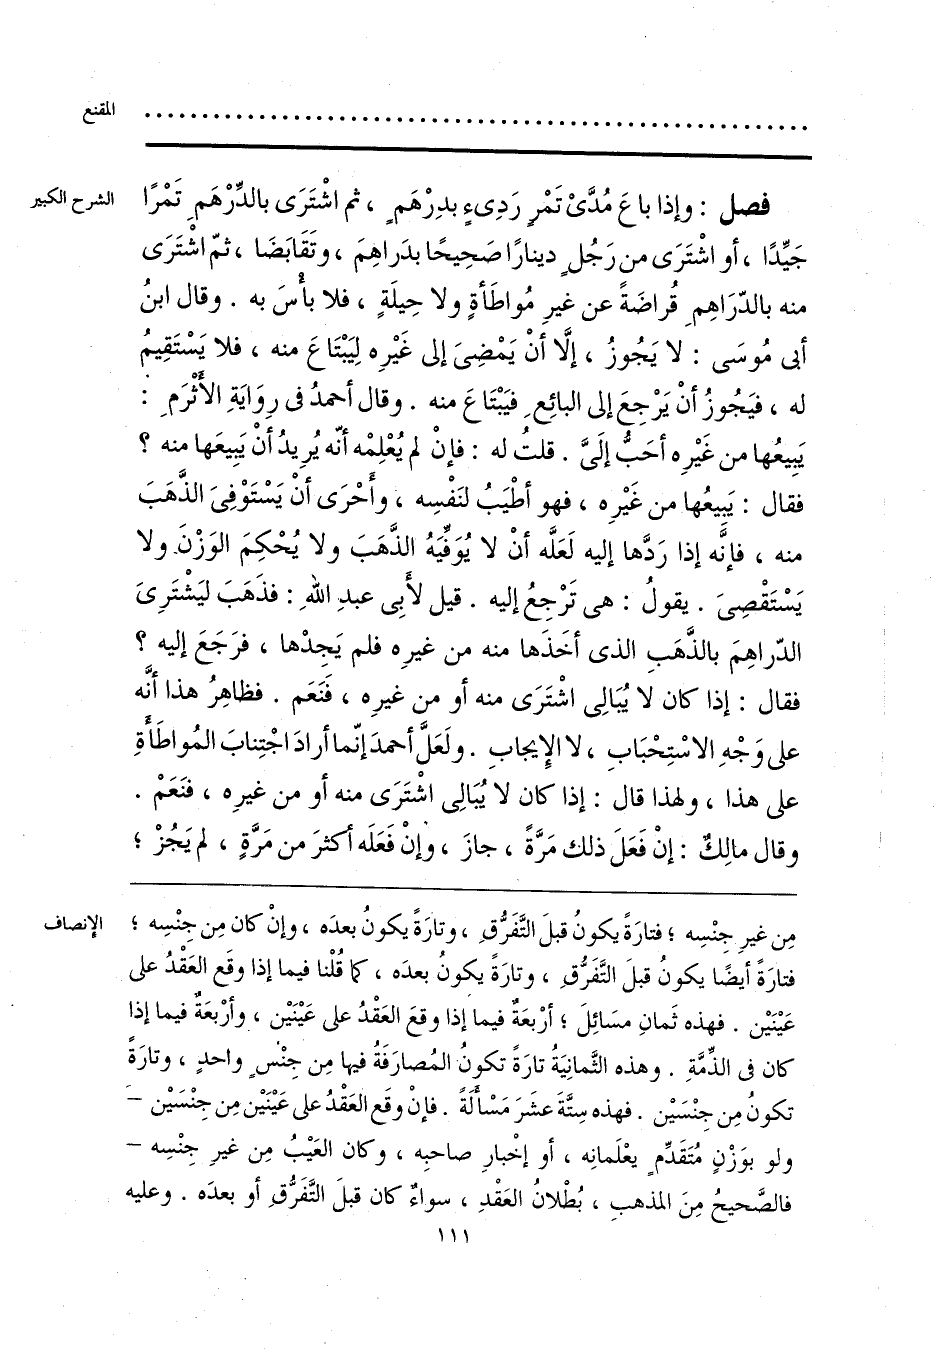 المقنع ..........................................................
الشرح الكبير
فصل : وإذا باعَ مُدَّىْ تَمْرٍ رَدِىءٍ بدِرْهَمٍ ، ثم اشْتَرَى بالدِّرْهَمِ تَمْرًا
جَيِّدًا ، أو اشْتَرَى من رَجُلٍ دينارًا صَحِيحًا بدَراهِمَ ، وتَقَابَضَا ، ثمّ اشْتَرَى
منه بالدّرَاهِمِ قُراضَةً عن غيرِ مُواطَأةٍ ولا حِيلَةٍ ، فلا بأْسَ به . وقال ابنُ
أبى مُوسَى : لا يَجُوزُ ، إلَّا أنْ يَمْضِىَ إلى غَيْرِه لِيَبْتَاعَ منه ، فلا يَسْتَقِيمُ
له ، فيَجُوزُ أنْ يَرْجِعَ إلى البائِعِ فيَبْتَاعَ منه . وقال أحمدُ فى رِوَايَةِ الأَثْرَمِ :
يَبِيعُها من غَيْرِه أحَبُّ إلَىَّ . قلتُ له : فإنْ لم يُعْلِمْه أنّه يُرِيدُ أنْ يَبِيعَها منه ؟
فقال : يَبِيعُها من غَيْرِه ، فهو أطْيَبُ لنَفْسِه ، وأَحْرَى أنْ يَسْتَوْفِىَ الذَّهَبَ
منه ، فإنَّه إذا رَدَّها إليه لَعَلَّه أنْ لا يُوَفِّيَهُ الذَّهَبَ ولا يُحْكِمَ الوَزْنَ ولا
يَسْتَقْصِىَ . يقولُ : هى تَرْجِعُ إليه . قيل لأَبِى عبدِ اللهِ : فذَهَبَ ليَشْتَرِىَ
الدّراهِمَ بالذَّهَبِ الذى أخَذَها منه من غيرِه فلم يَجِدْها ، فرَجَعَ إليه ؟
فقال : إذا كان لا يُبَالِى اشْتَرَى منه أو من غيرِه ، فَنَعَم . فظاهِرُ هذا أنَّه
على وَجْهِ الاسْتِحْبَابِ ، لا الإِيجابِ . ولَعَلَّ أحمدَ إنّما أرادَ اجْتِنابَ المُواطَأَةِ
على هذا ، ولهذا قال : إذا كان لا يُبَالِى اشْتَرَى منه أو من غيرِه ، فنَعَمْ .
وقال مالِكٌ : إنْ فَعَلَ ذلك مَرَّةً ، جازَ ، وإنْ فَعَلَه أكثرَ من مَرَّةٍ ، لم يَجُزْ ؛
الإنصاف
مِن غيرِ جِنْسِه ؛ فتارَةً يكونُ قبلَ التَّفَرُّقِ ، وتارَةً يكونُ بعدَه ، وإنْ كان مِن جِنْسِه ؛
فتارَةً أيضًا يكونُ قبلَ التَّفَرُّقِ ، وتارَةً يكونُ بعدَه ، كما قُلْنا فيما إذا وقَع العَقْدُ على
عَيْنَيْن . فهذه ثَمانِ مسَائِلَ ؛ أرْبعَةٌ فيما إذا وقعَ العَقْدُ على عَيْنَيْن ، وأرْبعَةٌ فيما إذا
كان فى الذِّمَّةِ . وهذه الثَّمانِيَةُ تارَةً تكونُ المُصارَفَةُ فيها مِن جِنْسٍ واحدٍ ، وتارَةً
تكونُ مِن جِنْسَيْن . فهذه سِتَّةَ عشَرَ مَسْأَلَةً . فإنْ وقَع العَقْدُ على عَيْنَيْن مِن جِنْسَيْن –
ولو بوَزْنٍ مُتَقَدِّمٍ يعْلَمانِه ، أو إخْبارِ صاحبِه ، وكان العَيْبُ مِن غيرِ جِنْسِه –
فالصَّحيحُ مِنَ المذهبِ ، بُطْلانُ العَقْدِ ، سواءٌ كان قبلَ التَّفَرُّقِ أو بعدَه . وعليه
١١١